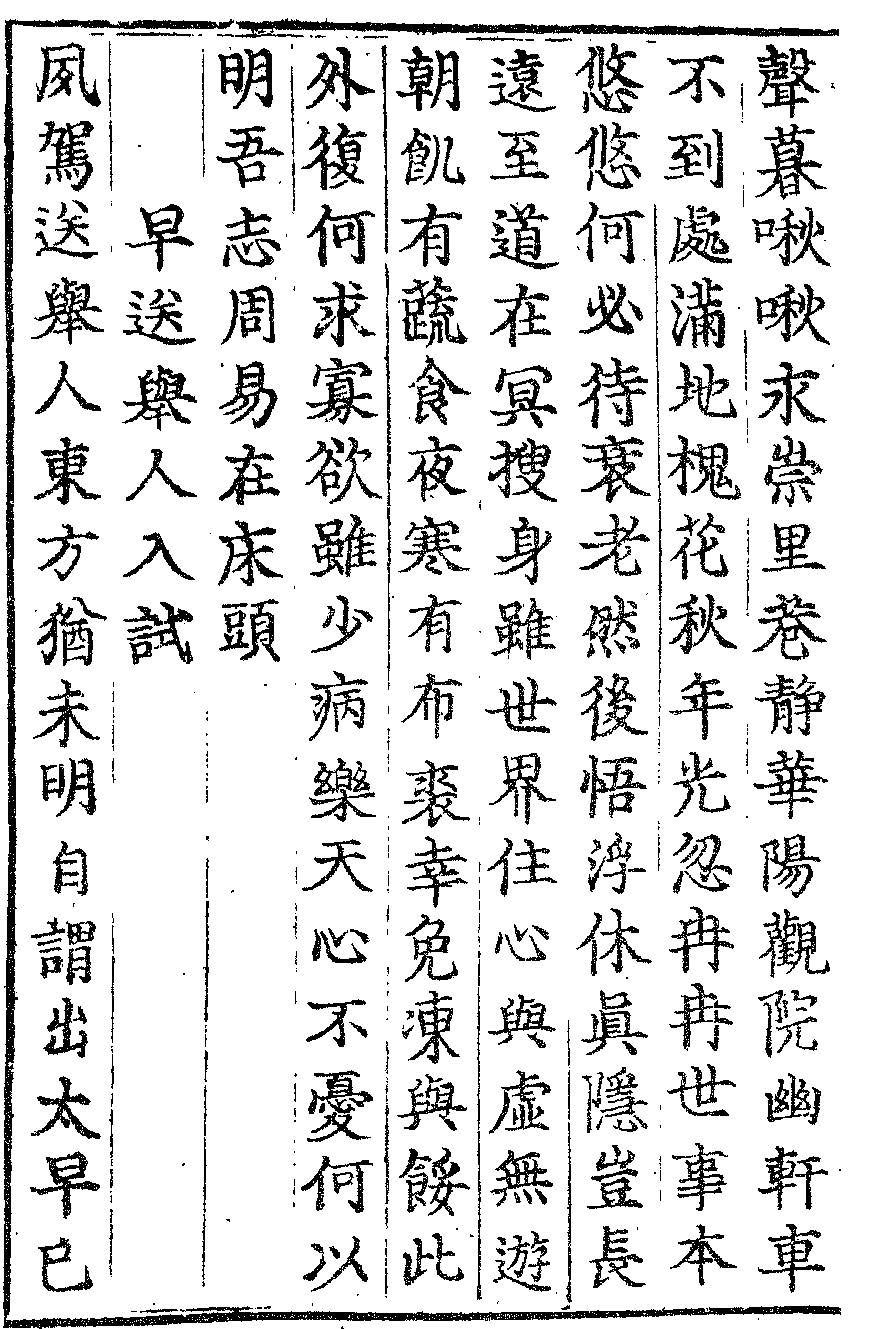 聲暮啾啾永崇里巷靜華陽觀院幽軒車
不到處滿地槐花秋年光忽冉冉世事本
悠悠何必待衰老然後悟浮休眞隱豈長
遠至道在冥搜身雖世界住心與虛無遊
朝飢有蔬食夜寒有布裘幸免凍與餒此
外復何求寡欲雖少病樂天心不憂何以
明吾志周易在床頭
早送舉人入試
夙駕送舉人東方猶未明自謂出太早已